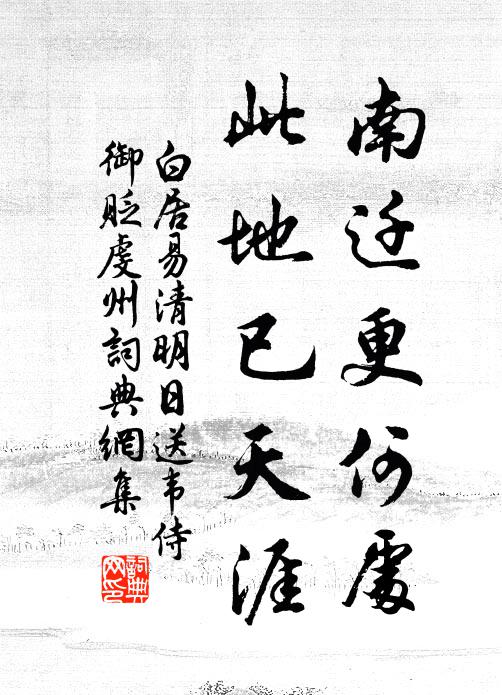 南迁更何處
此地已天涯
白居易清明日送韦侍
御貶虔州詞典網集
詞典
网印